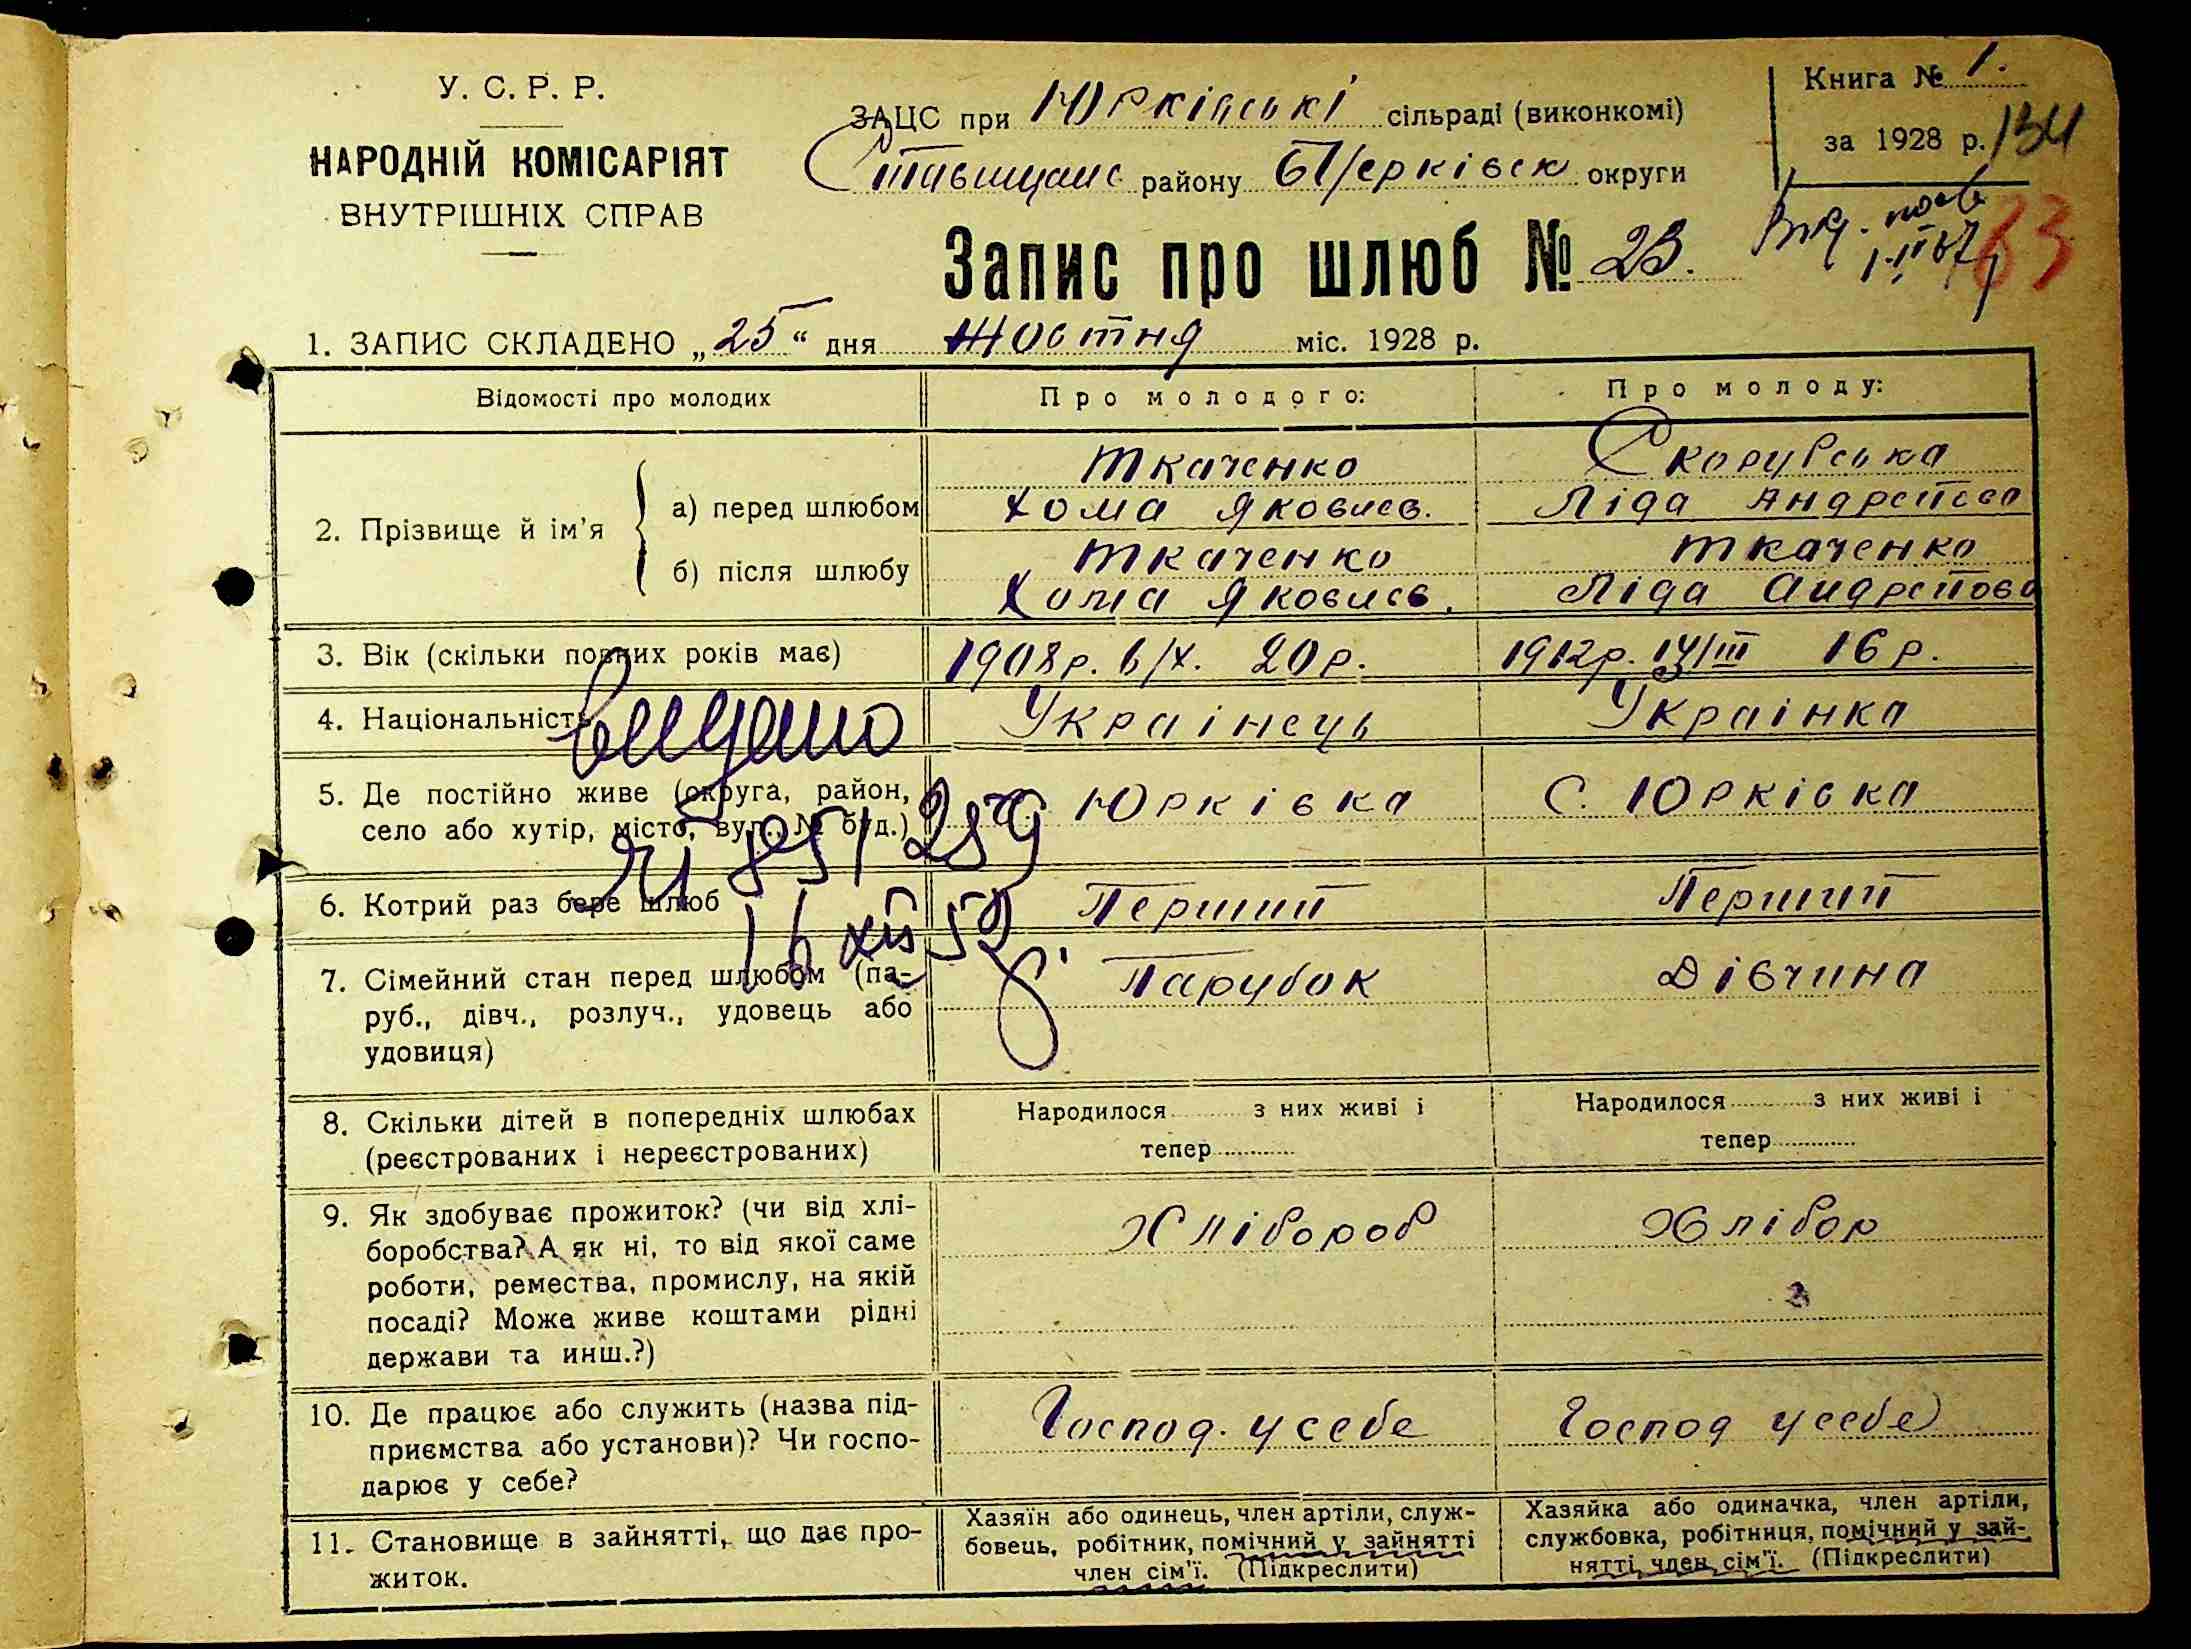 У. С. Р. Р.
НАРОДНІЙ КОМІСАРІЯТ
ВНУТРІШНІХ СПРАВ
ЗАЦС при Юрківські сільраді (виконкомі)
Ставищанс району Б/Церківск округи
Книга № 1.
за 1928 р. 134
63
Запис про шлюб № 23.
1. ЗАПИС СКЛАДЕНО „25“ дня Жовтня міс. 1928 р.
Відомості про молодих
Про молодого:
Про молоду:
2. Прізвище й ім’я
а) перед шлюбом
Ткаченко
Хома Яковлев.
Ліда Андреєва
б) після шлюбу
Ткаченко
Хома Яковлев.
Ткаченко
Ліда Андреїова
3. Вік (скільки повних років має)
1908 р. 6/X. 20 р.
1912 р. /III 16 р.
4. Національність
Украінець
Украінка
5. Де постійно живе (округа, район,
село або хутір, місто, вул., № буд.)
с. Юрківка
С. Юрківка
6. Котрий раз бере шлюб
Перший
Перший
7. Сімейний стан перед шлюбом (па-
руб., дівч., розлуч., удовець або
удовиця)
Парубок
Дівчина
8. Скільки дітей в попередніх шлюбах
(реєстрованих і нереєстрованих)
Народилося з них живі і
тепер
Народилося з них живі і
тепер
9. Як здобуває прожиток? (чи від хлі-
боробства? А як ні, то від якої саме
роботи, ремества, промислу, на якій
посаді? Може живе коштами рідні
держави та инш.?)
Хлібороб
Хлібор
10. Де працює або служить (назва під-
приємства або установи)? Чи госпо-
дарює у себе?
Господ. у себе
Господ у себе
11. Становище в зайнятті, що дає про-
житок.
Хазяїн або одинець, член артіли, служ-
бовець, робітник, помічний у зайнятті
член сім’ї. (Підкреслити)
Хазяйка або одиначка, член артіли,
службовка, робітниця, помічний у зай-
нятті, член сім’ї. (Підкреслити)